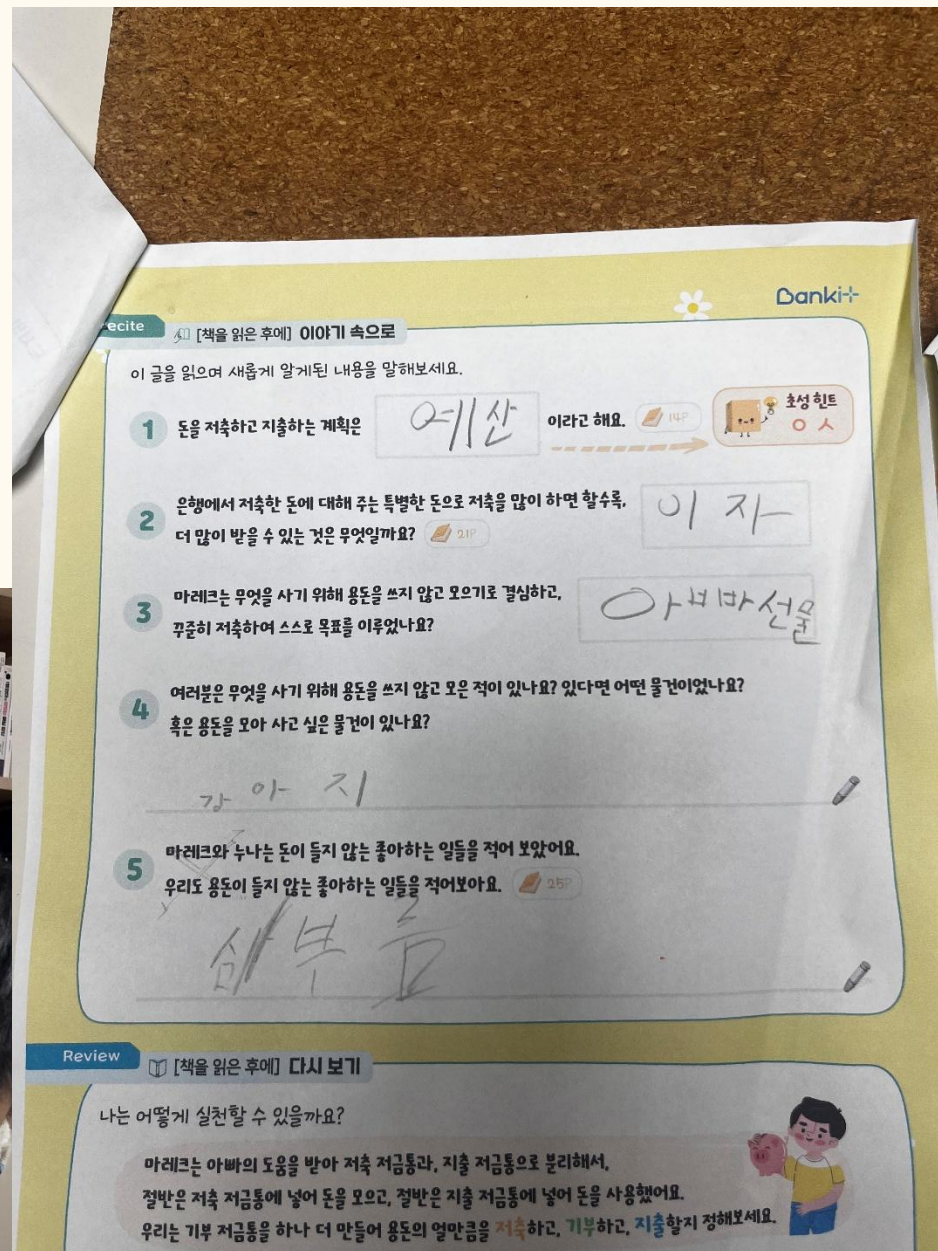 Bankit
ecite
[책을 읽은 후에] 이야기 속으로
이 글을 읽으며 새롭게 알게된 내용을 말해보세요.
1 돈을 저축하고 지출하는 계획은 예산 이라고 해요. 14P
초성 힌트
ㅇ ㅅ
2 은행에서 저축한 돈에 대해 주는 특별한 돈으로 저축을 많이 하면 할수록,
더 많이 받을 수 있는 것은 무엇일까요? 21P
이자
3 마레크는 무엇을 사기 위해 용돈을 쓰지 않고 모으기로 결심하고,
꾸준히 저축하여 스스로 목표를 이루었나요?
아빠선물
4 여러분은 무엇을 사기 위해 용돈을 쓰지 않고 모은 적이 있나요? 있다면 어떤 물건이었나요?
혹은 용돈을 모아 사고 싶은 물건이 있나요?
강아지
5 마레크와 누나는 돈이 들지 않는 좋아하는 일들을 적어 보았어요.
우리도 용돈이 들지 않는 좋아하는 일들을 적어보아요. 25P
심부름
Review
[책을 읽은 후에] 다시 보기
나는 어떻게 실천할 수 있을까요?
마레크는 아빠의 도움을 받아 저축 저금통과, 지출 저금통으로 분리해서,
절반은 저축 저금통에 넣어 돈을 모으고, 절반은 지출 저금통에 넣어 돈을 사용했어요.
우리는 기부 저금통을 하나 더 만들어 용돈의 얼만큼을 저축하고, 기부하고, 지출할지 정해보세요.